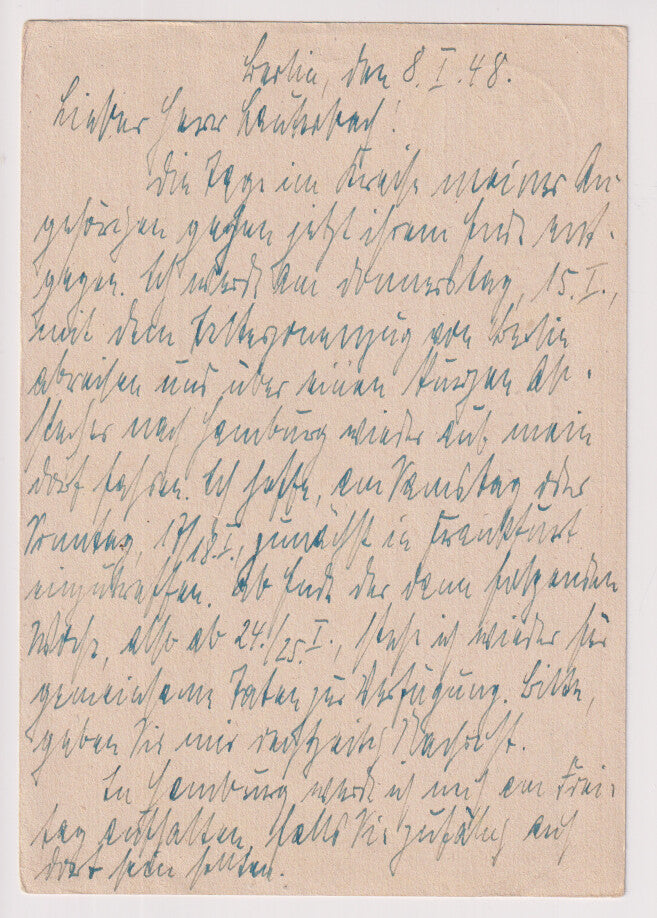 Berlin, den 8.I.48.
Lieber Herr Lauterbach!
Die Tage im Kreise meiner An-
gehörigen gehen jetzt ihrem Ende ent-
gegen. Ich werde am Donnerstag, 15.I.,
mit dem Interzonenzug von Berlin
abreisen und über einen kurzen Ab-
stecher nach Hamburg wieder auf mein
Dorf fahren. Ich hoffe, am Samstag oder
Sonntag, 17/18.I., zunächst in Frankfurt
einzutreffen. Ab Ende der dann folgenden
Woche, also ab 24./25.I., stehe ich wieder für
gemeinsame Taten zur Verfügung. Bitte,
geben Sie mir rechtzeitig Nachricht.
In Hamburg werde ich mich am Frei-
tag aufhalten, falls Sie zufällig auch
dort sein sollten.